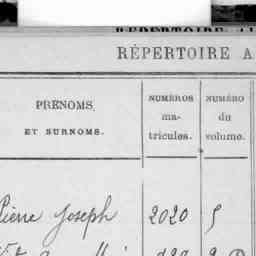 RÉPERTOIRE A
PRÉNOMS
ET SURNOMS.
NUMÉROS
ma-
tricules.
NUMÉRO
du
volume.
Pierre Joseph 2020 5